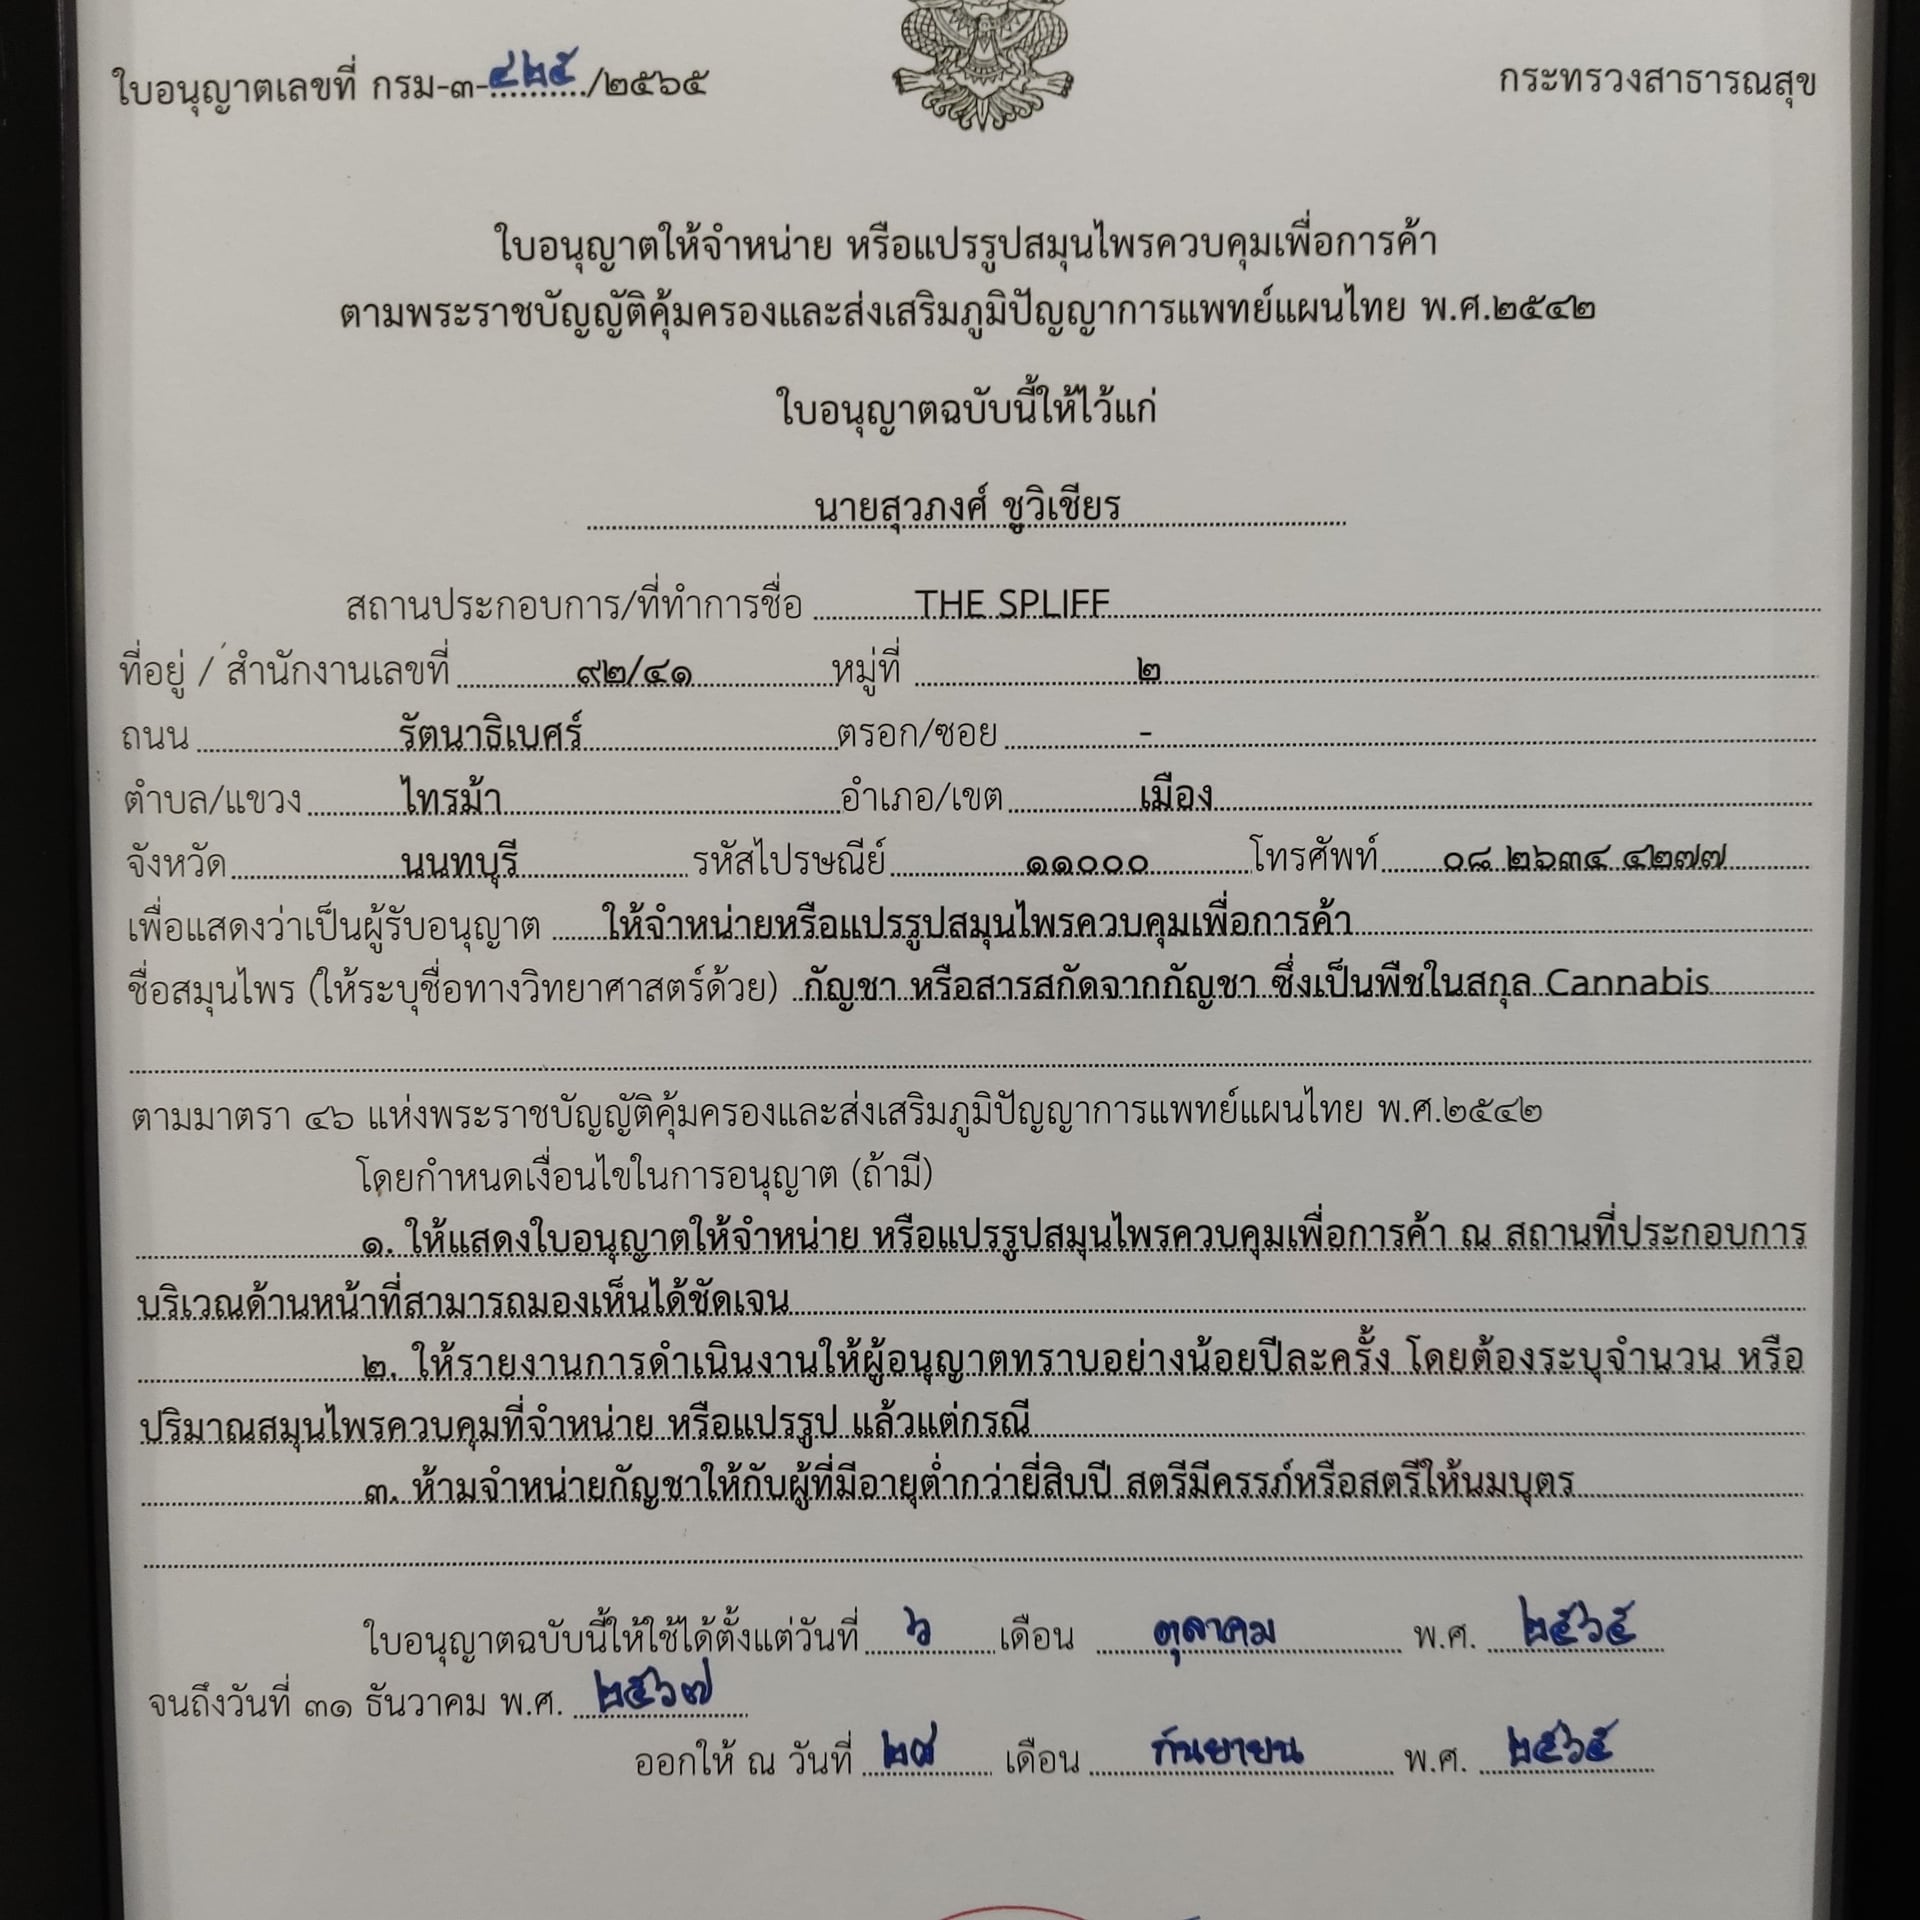 ใบอนุญาตเลขที่ กรม-๓-๔๒๕/๒๕๖๕
กระทรวงสาธารณสุข
ใบอนุญาตให้จำหน่าย หรือแปรรูปสมุนไพรควบคุมเพื่อการค้า
ตามพระราชบัญญัติคุ้มครองและส่งเสริมภูมิปัญญาการแพทย์แผนไทย พ.ศ.๒๕๔๒
ใบอนุญาตฉบับนี้ให้ไว้แก่
นายสุวภงศ์ ชูวิเชียร
สถานประกอบการ/ที่ทำการชื่อ THE SPLIFF
ที่อยู่ / สำนักงานเลขที่ ๙๒/๔๑ หมู่ที่ ๒
ถนน รัตนาธิเบศร์ ตรอก/ซอย -
ตำบล/แขวง ไทรม้า อำเภอ/เขต เมือง
จังหวัด นนทบุรี รหัสไปรษณีย์ ๑๑๐๐๐ โทรศัพท์ ๐๘ ๒๖๓๔ ๔๒๗๗
เพื่อแสดงว่าเป็นผู้รับอนุญาต ให้จำหน่ายหรือแปรรูปสมุนไพรควบคุมเพื่อการค้า
ชื่อสมุนไพร (ให้ระบุชื่อทางวิทยาศาสตร์ด้วย) กัญชา หรือสารสกัดจากกัญชา ซึ่งเป็นพืชในสกุล Cannabis
ตามมาตรา ๔๖ แห่งพระราชบัญญัติคุ้มครองและส่งเสริมภูมิปัญญาการแพทย์แผนไทย พ.ศ.๒๕๔๒
โดยกำหนดเงื่อนไขในการอนุญาต (ถ้ามี)
๑. ให้แสดงใบอนุญาตให้จำหน่าย หรือแปรรูปสมุนไพรควบคุมเพื่อการค้า ณ สถานที่ประกอบการ
บริเวณด้านหน้าที่สามารถมองเห็นได้ชัดเจน
๒. ให้รายงานการดำเนินงานให้ผู้อนุญาตทราบอย่างน้อยปีละครั้ง โดยต้องระบุจำนวน หรือ
ปริมาณสมุนไพรควบคุมที่จำหน่าย หรือแปรรูป แล้วแต่กรณี
๓. ห้ามจำหน่ายกัญชาให้กับผู้ที่มีอายุต่ำกว่ายี่สิบปี สตรีมีครรภ์หรือสตรีให้นมบุตร
ใบอนุญาตฉบับนี้ให้ใช้ได้ตั้งแต่วันที่ ๖ เดือน ตุลาคม พ.ศ. ๒๕๖๕
จนถึงวันที่ ๓๑ ธันวาคม พ.ศ. ๒๕๖๗
ออกให้ ณ วันที่ ๒๘ เดือน กันยายน พ.ศ. ๒๕๖๕